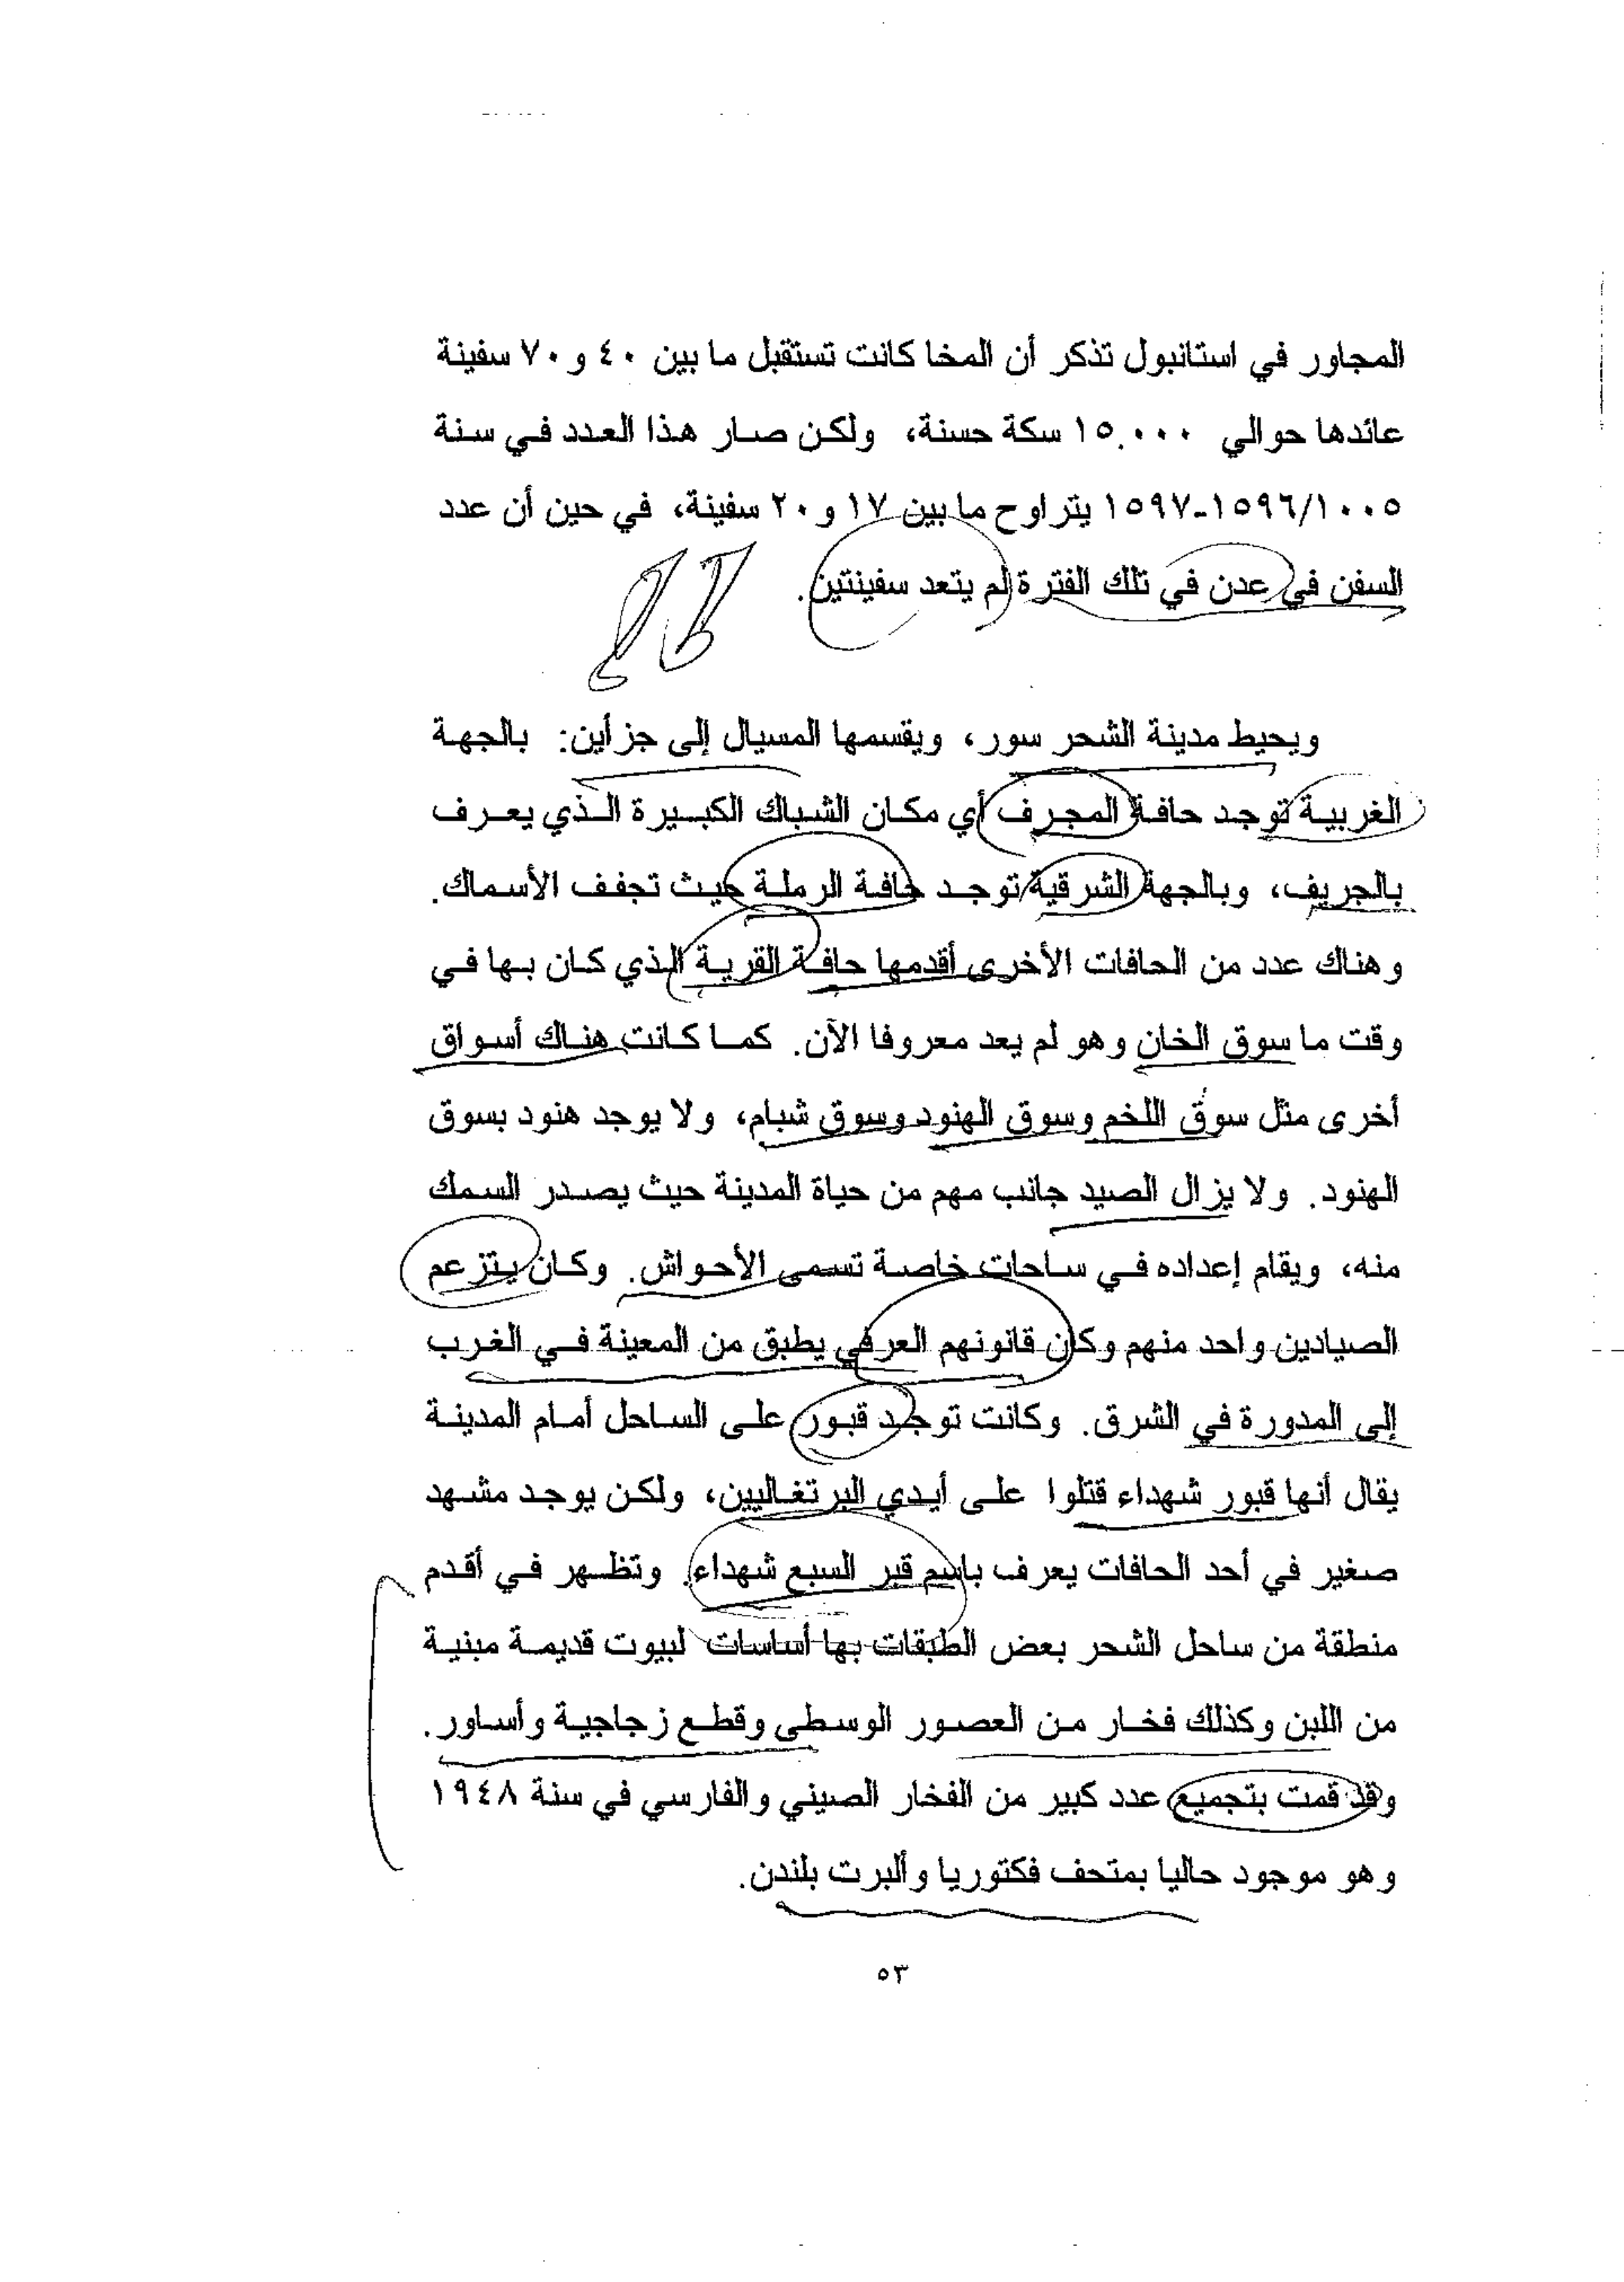 المجاور في استانبول تذكر أن المخا كانت تستقبل ما بين ٤٠ و ٧٠ سفينة
عائدها حوالي ١٥,٠٠٠ سكة حسنة، ولكن صار هذا العدد في سنة
١٥٩٦/١٠٠٥-١٥٩٧ يتراوح ما بين ١٧ و ٢٠ سفينة، في حين أن عدد
السفن في عدن في تلك الفترة لم يتعد سفينتين.
ويحيط مدينة الشحر سور، ويقسمها المسيال إلى جزأين: بالجهة
الغربية توجد حافة المجرف أي مكان الشباك الكبيرة الذي يعرف
بالجريف، وبالجهة الشرقية توجد حافة الرملة حيث تجفف الأسماك.
وهناك عدد من الحافات الأخرى أقدمها حافة القرية الذي كان بها في
وقت ما سوق الخان وهو لم يعد معروفا الآن. كما كانت هناك أسواق
أخرى مثل سوق اللخم وسوق الهنود وسوق شبام، ولا يوجد هنود بسوق
الهنود. ولا يزال الصيد جانب مهم من حياة المدينة حيث يصدر السمك
منه، ويقام إعداده في ساحات خاصة تسمى الأحواش. وكان يتزعم
الصيادين واحد منهم وكان قانونهم العرفي يطبق من المعينة في الغرب
إلى المدورة في الشرق. وكانت توجد قبور على الساحل أمام المدينة
يقال أنها قبور شهداء قتلوا على أيدي البرتغاليين، ولكن يوجد مشهد
صغير في أحد الحافات يعرف باسم قبر السبع شهداء. وتظهر في أقدم
منطقة من ساحل الشحر بعض الطبقات بها أساسات لبيوت قديمة مبنية
من اللبن وكذلك فخار من العصور الوسطى وقطع زجاجية وأساور.
وقد قمت بتجميع عدد كبير من الفخار الصيني والفارسي في سنة ١٩٤٨
وهو موجود حاليا بمتحف فكتوريا وألبرت بلندن.
٥٣